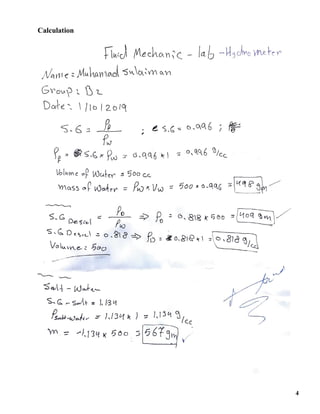 Calculation
Fluid Mechanic - lab - Hydrometer
Name = Muhamad Sulaiman
Group : B2
Date : 1/10/2019
S.G = ρp / ρw ; S.G = 0.996 ;
ρp = S.G × ρw = 0.996 × 1 = 0.996 g/cc
Volume of Water = 500 cc
mass of Water = ρw × Vw = 500 × 0.996 = 498 gm
S.G Desial = ρD / ρw ⇒ ρD = 0.818 × 500 = 409 gm
S.G Desial = 0.818 ⇒ ρD = 0.818 × 1 = 0.818 g/cc
Volume = 500
Salt - Water
S.G - Salt = 1.134
ρsalt-water = 1.134 × 1 = 1.134 g/cc
m = 1.134 × 500 = 567 gm
4